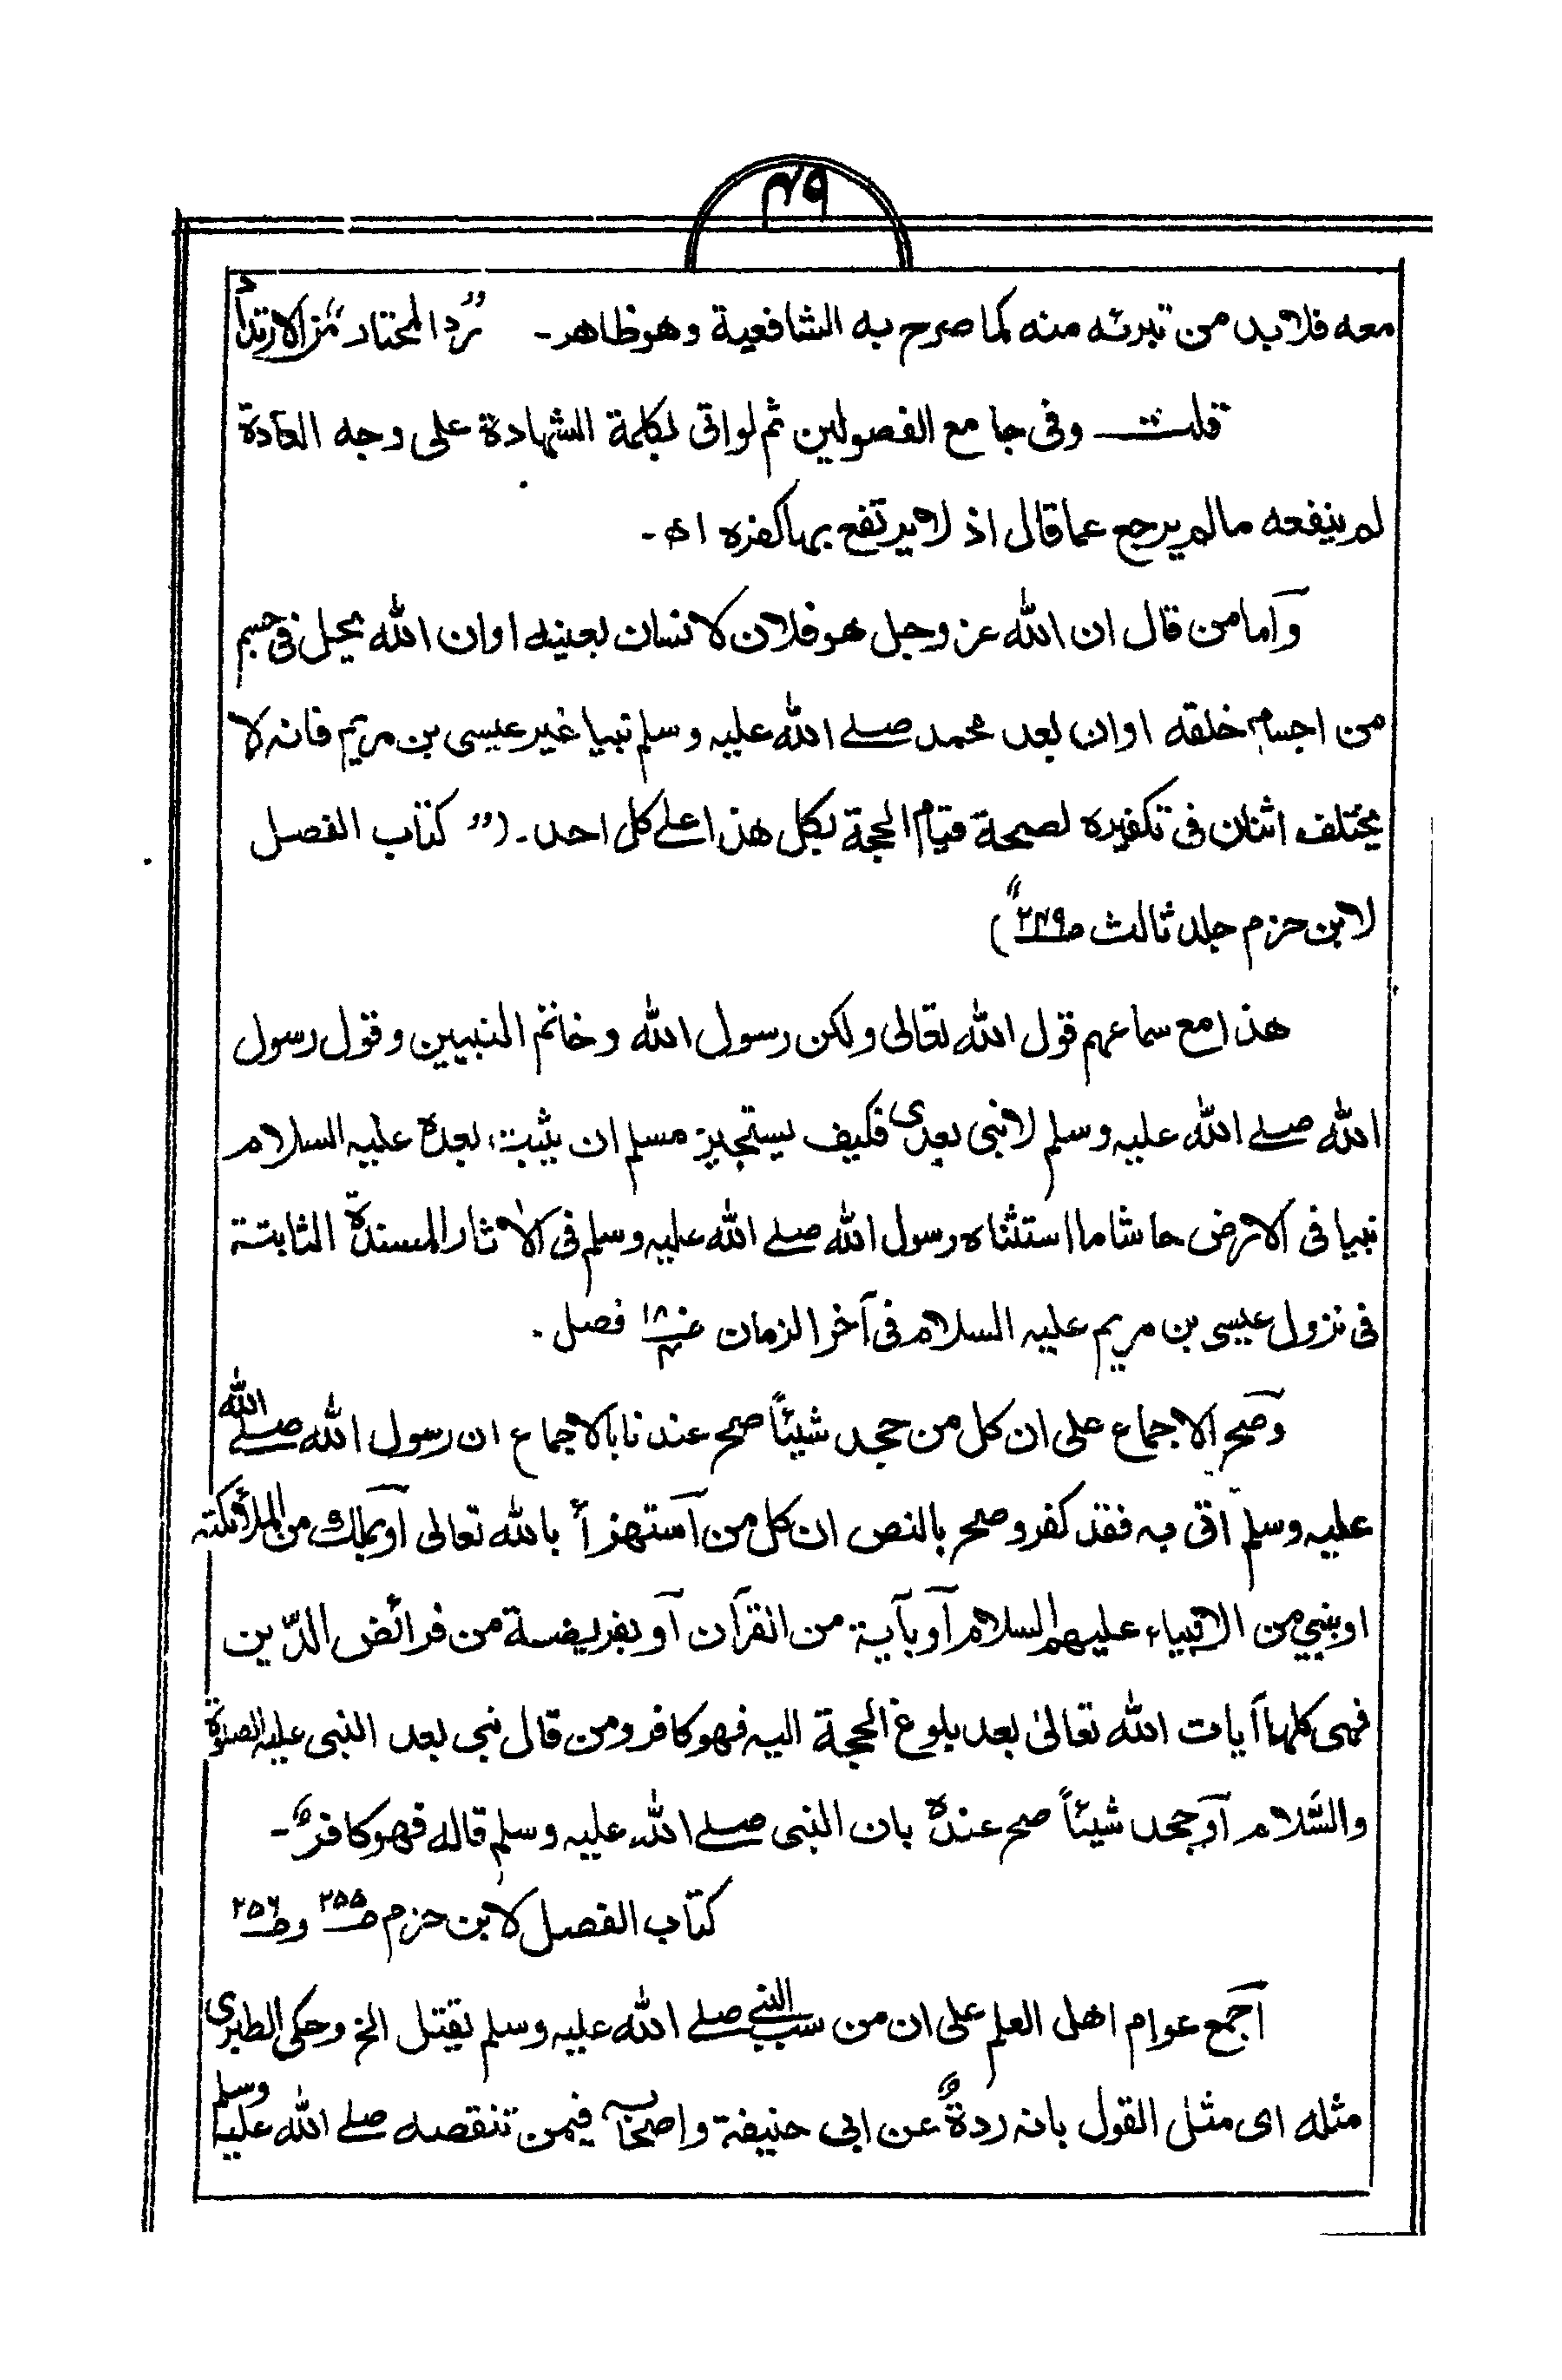 ۴۹
معه فلابد من تبرئه منه كما صرح به الشافعية وهو ظاهر۔ "رد المحتار" من الارتداد
قلت وفی جامع الفصولين ثم لواتی بكلمة الشهادة علی وجه العادة
لم ينفعه مالم يرجع عما قال اذ لا يرتفع بها كفره اھ۔
وآما من قال ان الله عز وجل هو فلان لانسان بعينه اوان الله يحل فی جسم
من اجسام خلقه اوان بعد محمد صلے الله علیہ وسلم نبيا غير عيسی بن مريم فانہ لا
يختلف اثنان فی تكفيره لصحة قيام الحجة بكل هذا علے كل احد۔ ("كتاب الفصل
لابن حزم جلد ثالث ص۲۴۹")
هذا مع سماعهم قول الله تعالی ولكن رسول الله وخاتم النبيين وقول رسول
الله صلے الله علیہ وسلم لا نبی بعدی فكيف يستجيز مسلم ان يثبت بعده علیہ السلام
نبيا فی الارض حاشا ما استثناه رسول الله صلے الله علیہ وسلم فی الآثار المسندة الثابتة
فی نزول عيسی بن مريم علیہ السلام فی آخر الزمان ۱۸ فصل۔
وصح الاجماع علی ان كل من جحد شيئاً صح عندنا بالاجماع ان رسول الله صلے الله
علیہ وسلم اتی بہ فقد كفر وصح بالنص ان كل من آستهزأ بالله تعالی آو بملك من الملائكتہ
اوبنبي من الانبياء عليهم السلام آو بآية من القرآن آو بفريضة من فرائض الدّين
فهی كلها آيات الله تعالیٰ بعد بلوغ الحجة اليہ فهو كافر ومن قال نبی بعد النبی علیہ الصلوة
والسَّلام آو جحد شيئاً صح عندهٗ بان النبی صلے الله علیہ وسلم قاله فهو كافر۔
كتاب الفصل لابن حزم ص۲۵۵ وص۲۵۶
آجمع عوام اهل العلم علی ان من سب النبے صلے الله علیہ وسلم يقتل الخ وحكی الطبری
مثله ای مثل القول بانہ ردةٌ عن ابی حنيفة واصحابہ فيمن تنقصه صلے الله علیہ وسلم